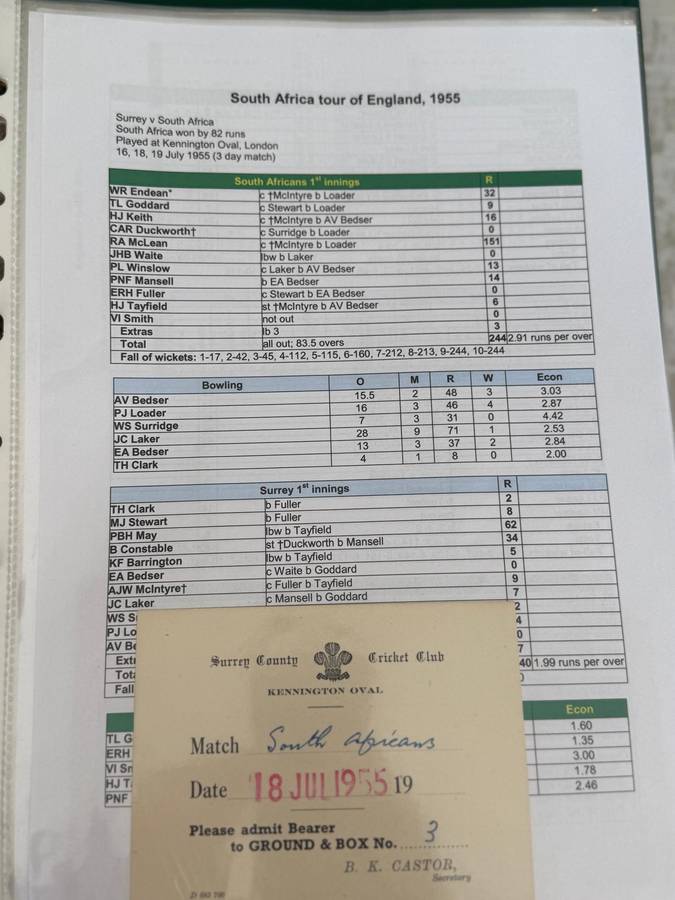 South Africa tour of England, 1955
Surrey v South Africa
South Africa won by 82 runs
Played at Kennington Oval, London
16, 18, 19 July 1955 (3 day match)
South Africans 1st innings R
WR Endean* c †McIntyre b Loader 32
TL Goddard c Stewart b Loader 9
HJ Keith c †McIntyre b AV Bedser 16
CAR Duckworth† c Surridge b Loader 0
RA McLean c †McIntyre b Loader 151
JHB Waite lbw b Laker 0
PL Winslow c Laker b AV Bedser 13
PNF Mansell b EA Bedser 14
ERH Fuller c Stewart b EA Bedser 0
HJ Tayfield st †McIntyre b AV Bedser 6
VI Smith not out 0
Extras lb 3 3
Total all out; 83.5 overs 244 2.91 runs per over
Fall of wickets: 1-17, 2-42, 3-45, 4-112, 5-115, 6-160, 7-212, 8-213, 9-244, 10-244
Bowling O M R W Econ
AV Bedser 15.5 2 48 3 3.03
PJ Loader 16 3 46 4 2.87
WS Surridge 7 3 31 0 4.42
JC Laker 28 9 71 1 2.53
EA Bedser 13 3 37 2 2.84
TH Clark 4 1 8 0 2.00
Surrey 1st innings R
TH Clark b Fuller 2
MJ Stewart b Fuller 8
PBH May lbw b Tayfield 62
B Constable st †Duckworth b Mansell 34
KF Barrington lbw b Tayfield 5
EA Bedser c Waite b Goddard 0
AJW McIntyre† c Fuller b Tayfield 9
JC Laker c Mansell b Goddard 7
WS S 2
PJ Lo 4
AV Be 0
Extr 7
Tota 40 1.99 runs per over
Fall
Econ
TL G 1.60
ERH 1.35
VI Sm 3.00
HJ T 1.78
PNF 2.46
Surrey County Cricket Club
KENNINGTON OVAL
Match South Africans
Date 18 JUL 1955 19
Please admit Bearer
to GROUND & BOX No. 3
B. K. CASTOR,
Secretary